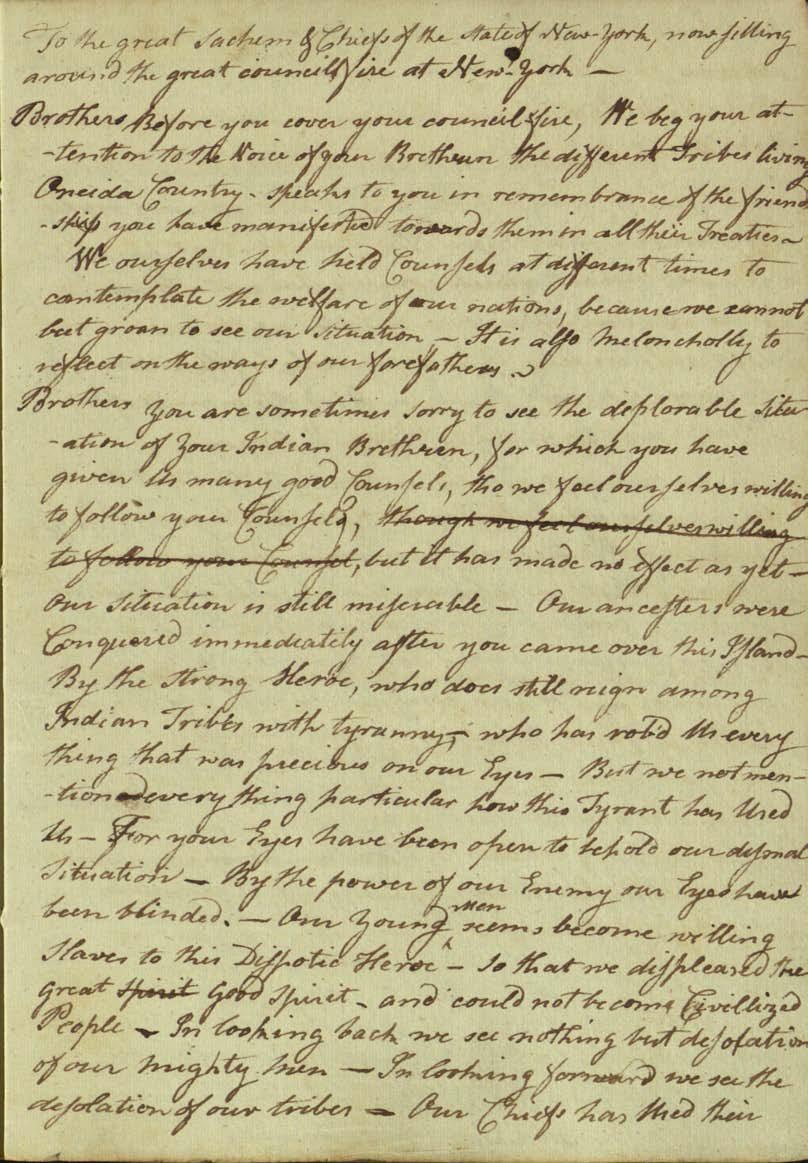 To the great Sachem & Chiefs of the State of New-York, now sitting
around the great council fire at New-York —
Brothers, Before you cover your council fire, We beg your at-
-tention to the Voice of your Brethren the different Tribes living
Oneida Country - speaks to you in remembrance of the friend
-ship you have manifested towards them in all their Treaties ~
We ourselves have held Counsels at different times to
contemplate the welfare of our nations, because we cannot
but groan to see our situation, - It is also Meloncholly to
reflect on the ways of our forefathers ~
Brothers you are sometimes sorry to see the deplorable situ
-ation of your Indian Brethren, for which you have
given us many good Counsels, tho we feel ourselves willing
to follow your Counsels, though we feel ourselves willing
to follow your Counsel, but it has made no effect as yet —
our situation is still miserable — Our ancesters were
Conquered immediatily after you came over this Island -
By the strong Heroe, who does still reign among
Indian Tribes with tyranny, - who has robd Us every
thing that was precious on our Eyes — But we not men-
-tioned every thing particular how this Tyrant has Used
Us — For your Eyes have been open to behold our dismal
situation — By the power of our Enemy our Eyes have
been blinded. — Our young men seems become willing
Slaves to this Dispotic Heroe - so that we displeased the
great spirit Good spirit - and could not become Civillized
People — In looking back we see nothing but desolation
of our mighty men — In looking forward we see the
desolation of our tribes — Our Chiefs has Used their